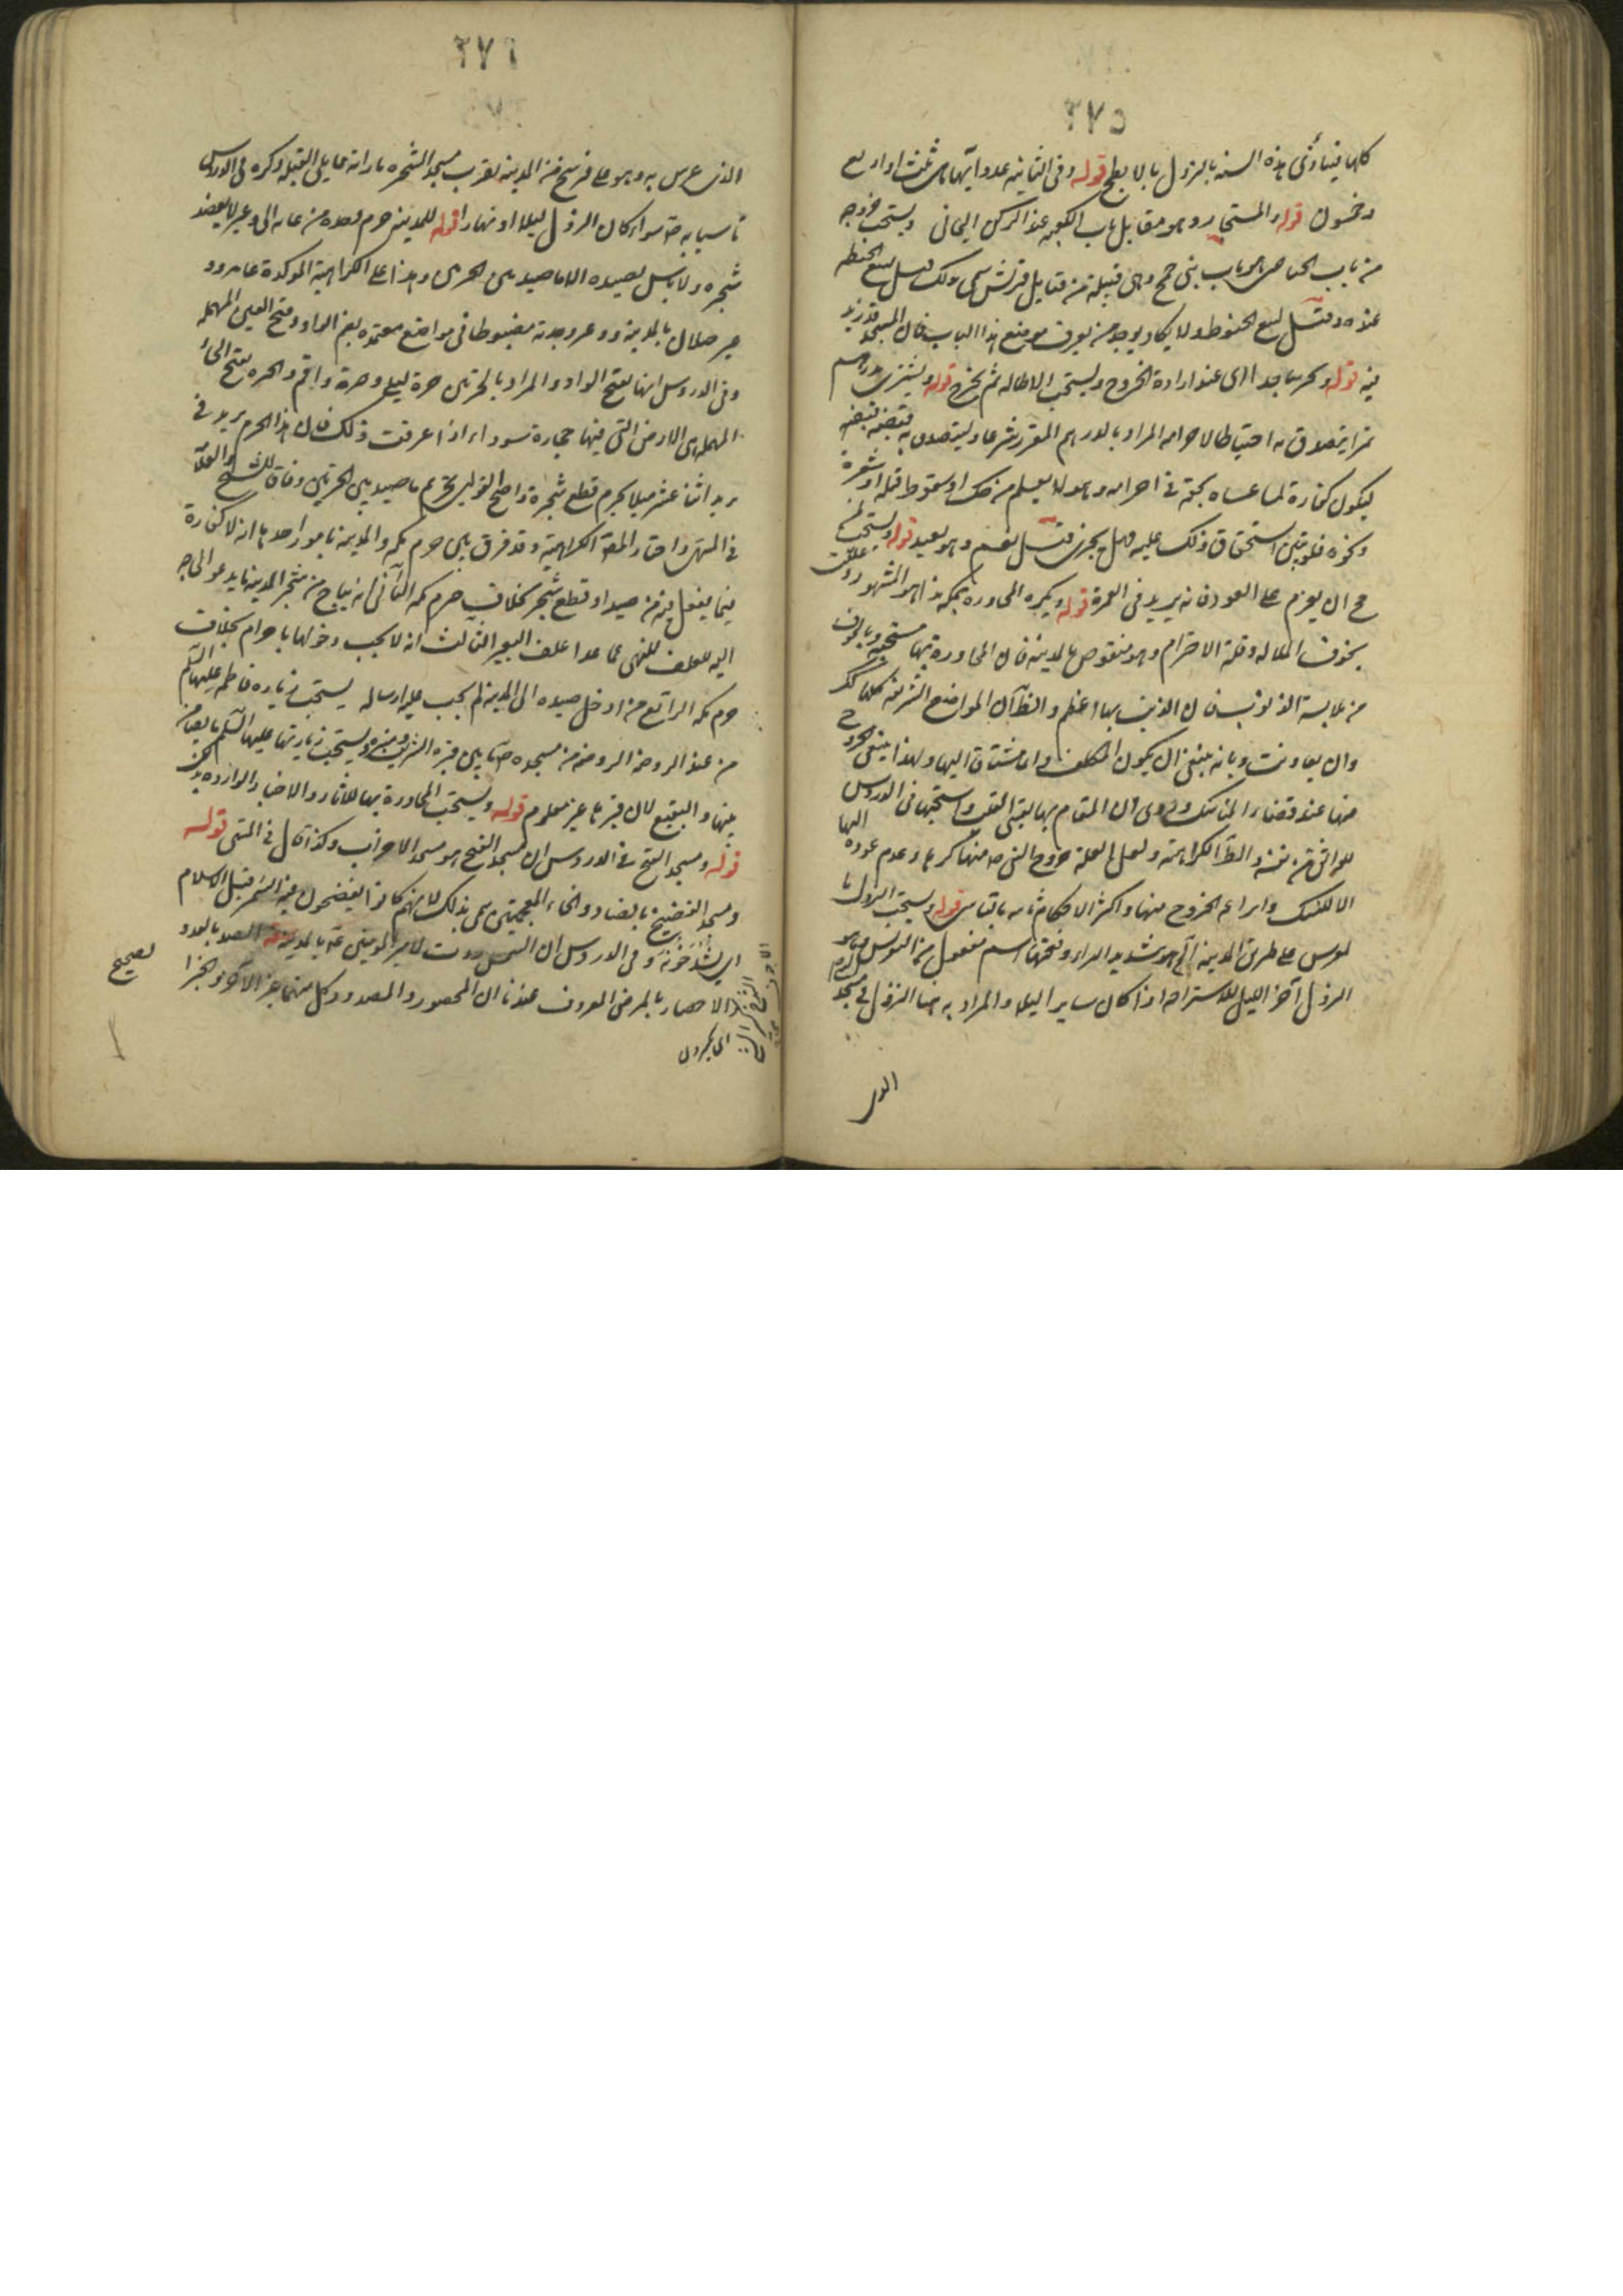 ٢٧٥
كلها فيتأدى هذه السنة بالنزول بالابطح قوله وفى الثانية عدد آيها هى ثلث او اربع
وخمسون قوله والمستجار وهو مقابل باب الكعبة عند الركن اليمانى ويستحب خروجه
من باب الحناطين هو باب بنى جمح وهى قبيلة من قبايل قريش سمى بذلك قيل لبيع الحنطة
عنده وقيل لبيع الحنوط ولا يكاد يوجد من يعرف موضع هذا الباب فان المسجد قد زيد
فيه قوله وخر ساجدا اى عند ارادة الخروج ويستحب الاطالة ثم يخرج قوله ويشترى بدرهم
تمرا يتصدق به احتياطا لاحرامه المراد بالدرهم المقرر شرعا ويتصدق به قبضة قبضة
ليكون كفارة لما عساه لحقه فى احرامه وهو لا يعلم من حك او سقوط قملة او شعرة
ونحوه فلو تبين استحقاق ذلك عليه فهل يجزى قيل نعم وهو بعيد قوله ويستحب لمن
حج ان يعزم على العود فانه يزيد فى العمر قوله ويكره المجاورة بمكة هذا هو المشهور وعللت
بخوف الملالة وقلة الاحترام وهو منقوض بالمدينة فان المجاورة بها مستحبة وبالخوف
من ملابسة الذنوب فان الذنب بها اعظم والظ ان المواضع الشريفة كلها كك
وان تفاوتت وبانه ينبغى ان يكون المكلف دائما مشتاقا اليها ولهذا ينبغى الخروج
منها عند قضاء المناسك وروى ان المقام بها يقسى القلب واستحبها فى الدروس
للواثق من نفسه والظ الكراهة ولعل العلة خروج النبى ص منها كرها وعدم عوده اليها
الا للنسك وامراعه الخروج منها واكثر الاحكام ثابتة بالتأسى قوله ويستحب النزول بالـ
معرس على طريق المدينة المعرس هو بتشديد الراء وفتحها اسم مفعول من التعريس وهو
النزول آخر الليل للاستراحة اذا كان سايرا ليلا والمراد به هنا النزول فى مسجد
الذى
٢٧٦
الذى عرس به وهو على فرسخ من المدينة بقرب مسجد الشجرة بازائه مما يلى القبلة ذكره فى الدروس
تأسيا به ص سواء كان النزول ليلا او نهارا قوله للمدينة حرم وحده من عاير الى وعير لا يعضد
شجره ولا بأس بصيده الا ما صيد بين الحرتين وهذا على الكراهية المؤكدة عاير و
جبلان بالمدينة ووعير وجدته مضبوطا فى مواضع معتمدة بضم الواو وفتح العين المهملة
وفى الدروس انها بفتح الواو والمراد بالحرتين حرة ليلى وحرة واقم والحرة بفتح الحاء
المهملة هى الارض التى فيها حجارة سوداء اذا عرفت ذلك فان هذا الحرم بريد فى
بريد اثنا عشر ميلا يحرم قطع شجره واصح القولين تحريم ما صيد بين الحرتين وفاقا للشيخ والعلامة
فى المنتهى واختار المص الكراهية وقد فرق بين حرم مكة والمدينة بامور احدها انه لا كفارة
فيما يفعل فيه من صيد او قطع شجر بخلاف حرم مكة الثانى انه يباح من شجر المدينة ما يدعو الحاجة
اليه للعلف للنهى عما عدا علف البعير الثالث انه لا يجب دخولها باحرام بخلاف
حرم مكة الرابع من ادخل صيده الى المدينة لم يجب عليه ارساله يستحب زيارة فاطمة عليها السلم
من عند الروضة الروضة من مسجده ص ما بين قبره الشريف ومنبره ويستحب زيارتها عليها السلم بالبقيع ايضا
بينها والبقيع لان قبرها غير معلوم قوله ويستحب المجاورة بها للآثار والاخبار الواردة بذلك
قوله ومسجد الفتح فى الدروس ان مسجد الفتح هو مسجد الاحزاب وكذا قال فى المنتهى قوله
ومسجد الفضيخ بالضاد والخاء المعجمتين سمى بذلك لانهم كانوا يفضخون فيه التمر قبل الاسلام
اى يشدخونه وفى الدروس ان الشمس ردت لامير المؤمنين ع بالمدينة فيه الصد بالعدو
والاحصار بالمرض المعروف عندنا ان المحصور والمصدود وكل منهما غير الآخر
اى يكردن
صحيح